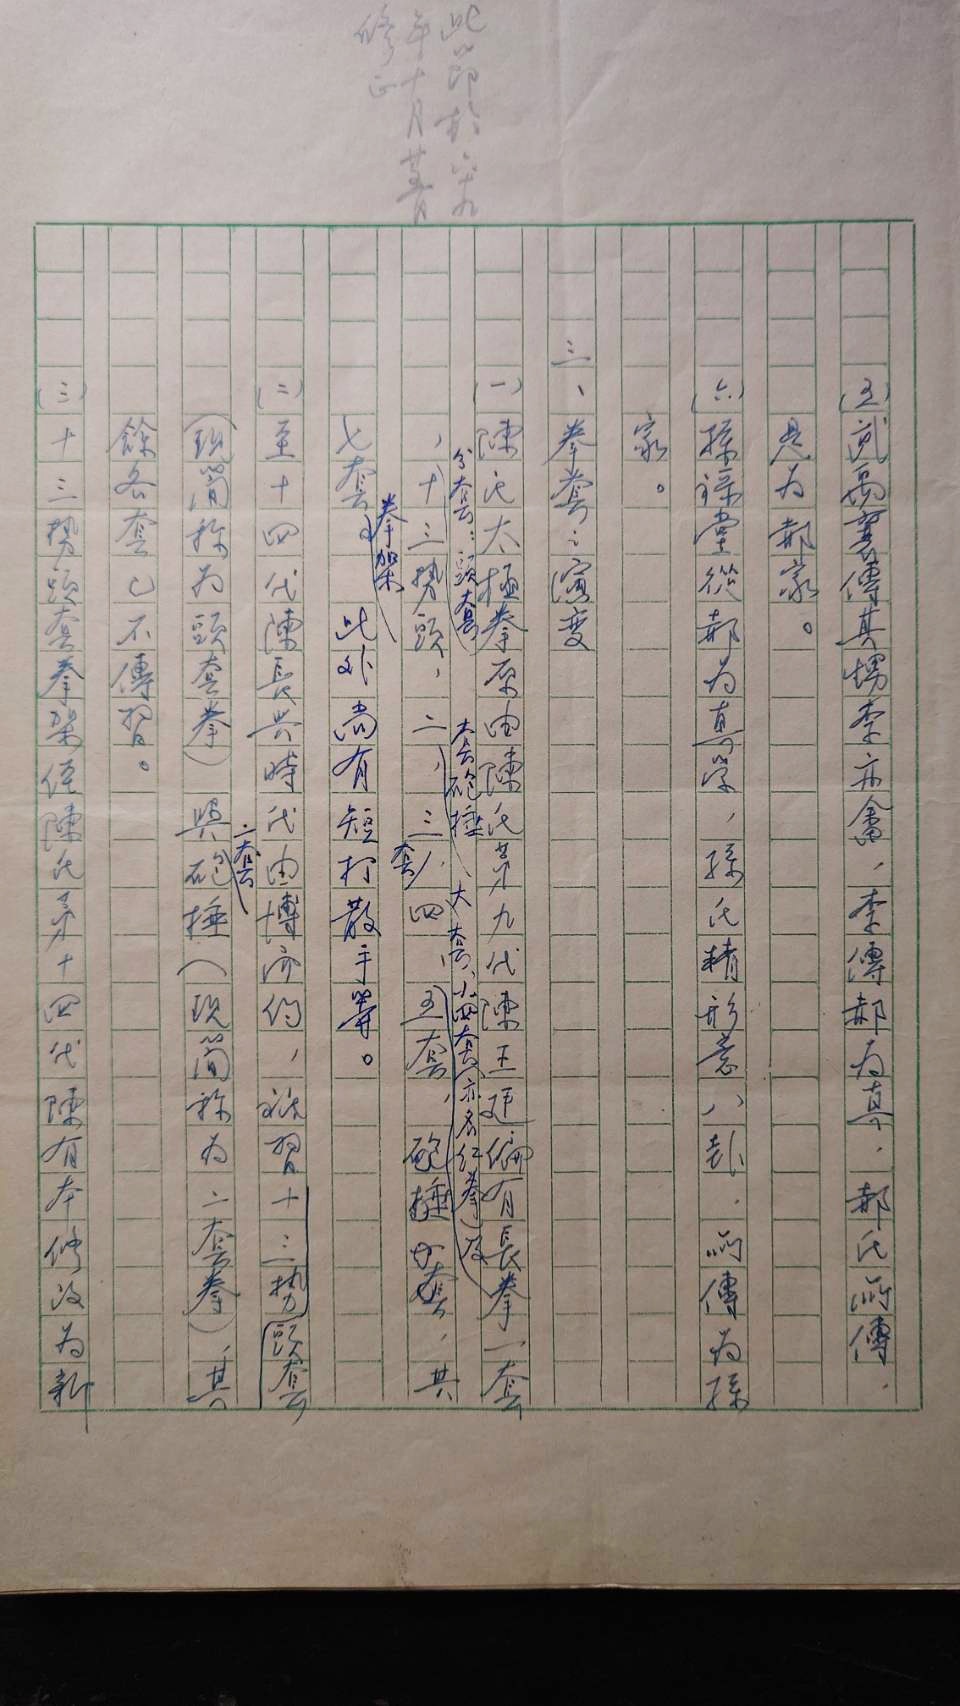 此節於六十九
年十月著
修正
(五)武禹襄傳其甥李亦畬，李傳郝為真，郝氏所傳，
是為郝家。
(六)孫祿堂從郝為真學，孫氏精形意八卦，所傳為孫
家。
三、拳套之演变
(一)陳氏太極拳原由陳氏第九代陳王廷编有長拳一套
分套：頭套
大套砲捶、大套、小四套(亦名红拳)及
，十三勢頭，二，三，四，五套，砲捶一套，共
套
七套
拳架
此外尚有短打散手等。
(二)至十四代陳長兴時代由博而约，祇習十三势頭套
(現簡称为頭套拳)與砲捶(現简称为二套拳)，其
二套
餘各套已不傳習。
(三)十三勢頭套拳架经陳氏第十四代陳有本修改为新